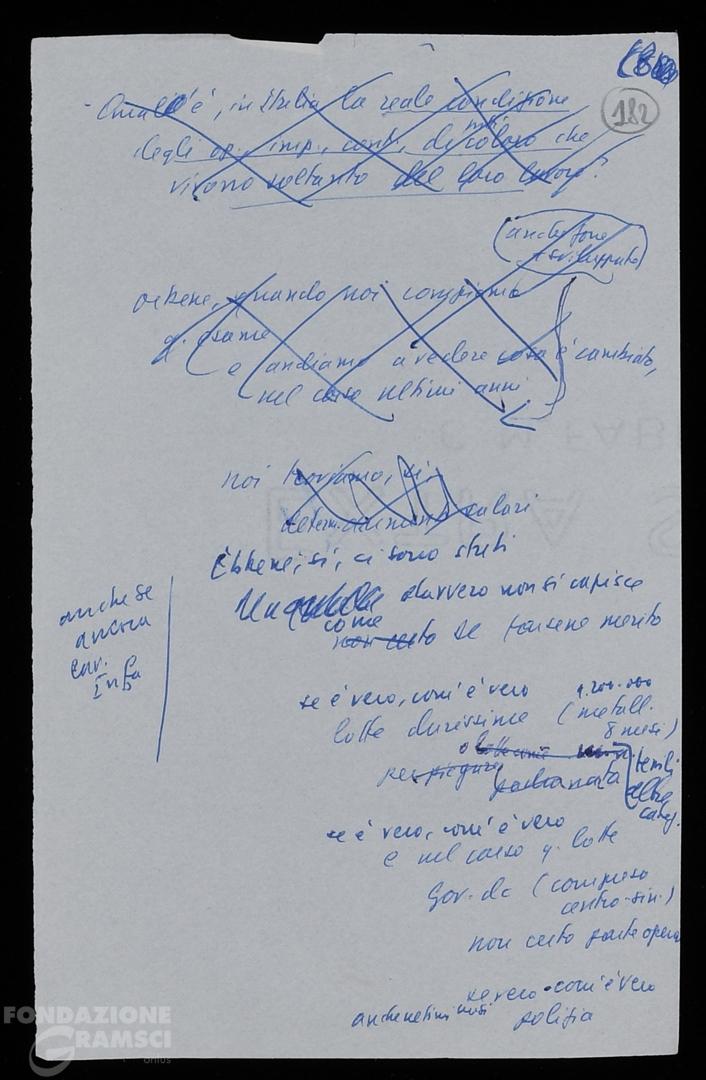 182
- Qual'è, in Italia la reale condizione
degli op., imp., cont., di tutti coloro che
vivono soltanto del loro lavoro?
(anche zone
+ sviluppate)
ebbene, quando noi compiamo
q. esame
e andiamo a vedere cosa è cambiato,
nel corso ultimi anni
noi troviamo, sì,
determ. aumenti salari
Ebbene, sì, ci sono stati
Ma davvero non si capisce
come
non certo se fossero merito
anche se
ancora
se è vero, com'è vero
1.200.000
lotte durissime (metall.
8 mesi)
per piegare
padronato
tessili
altre
categ.
se è vero, com'è vero
e nel corso q. lotte
Gov. dc (compreso
centro-sin.)
non certo parte opera
se vero - com'è vero
anche ultimi mesi polizia
FONDAZIONE
GRAMSCI
onlus